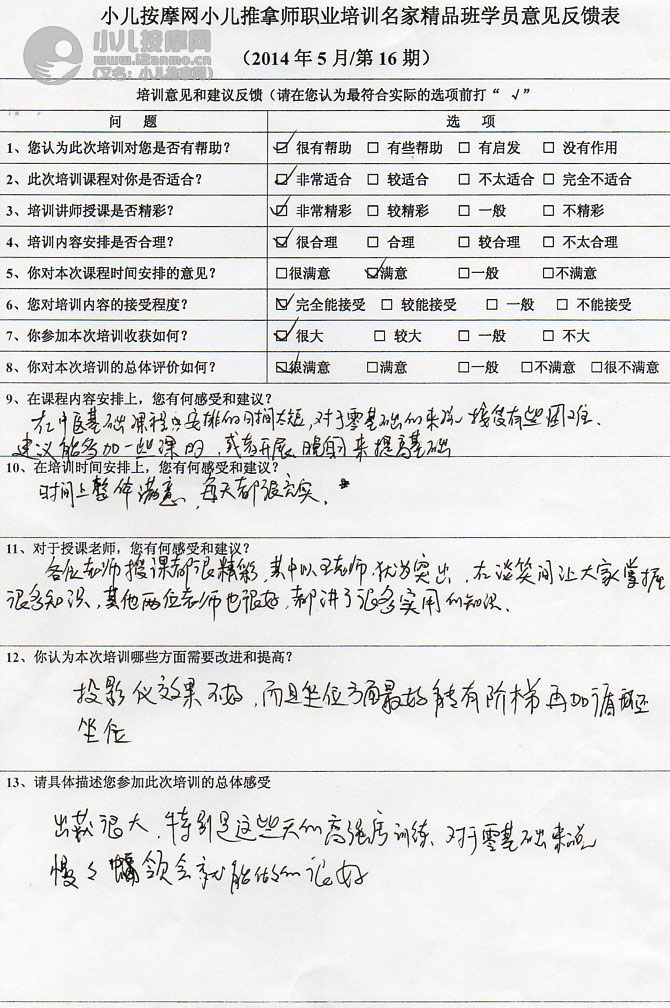 小儿按摩网小儿推拿师职业培训名家精品班学员意见反馈表
小儿按摩网
www.12anmo.cn
(又名:小儿推拿网)
(2014年5月/第16期)
培训意见和建议反馈(请在您认为最符合实际的选项前打“ √”
问 题 选 项
1、您认为此次培训对您是否有帮助? ☑ 很有帮助 □ 有些帮助 □ 有启发 □ 没有作用
2、此次培训课程对你是否适合? ☑ 非常适合 □ 较适合 □ 不太适合 □ 完全不适合
3、培训讲师授课是否精彩? ☑ 非常精彩 □ 较精彩 □ 一般 □ 不精彩
4、培训内容安排是否合理? ☑ 很合理 □ 合理 □ 较合理 □ 不太合理
5、你对本次课程时间安排的意见? □很满意 ☑满意 □一般 □不满意
6、您对培训内容的接受程度? ☑ 完全能接受 □ 较能接受 □ 一般 □ 不能接受
7、你参加本次培训收获如何? ☑ 很大 □ 较大 □ 一般 □ 不大
8、你对本次培训的总体评价如何? ☑很满意 □满意 □一般 □不满意 □很不满意
9、在课程内容安排上,您有何感受和建议?
在中医基础课程安排的时间太短,对于零基础的来说接受有些困难.
建议能多加一些课时,或者开展晚自习来提高基础
10、在培训时间安排上,您有何感受和建议?
时间上整体满意,每天都很充实.
11、对于授课老师,您有何感受和建议?
各位老师授课都很精彩,其中以王老师犹为突出,在谈笑间让大家掌握
很多知识,其他两位老师也很好,都讲了很多实用的知识.
12、你认为本次培训哪些方面需要改进和提高?
投影仪效果不好,而且坐位方面最好能有阶梯再加循环
坐位
13、请具体描述您参加此次培训的总体感受
很大,特别是这些天的高强度训练、对于零基础来说
慢々领会就能做的很好